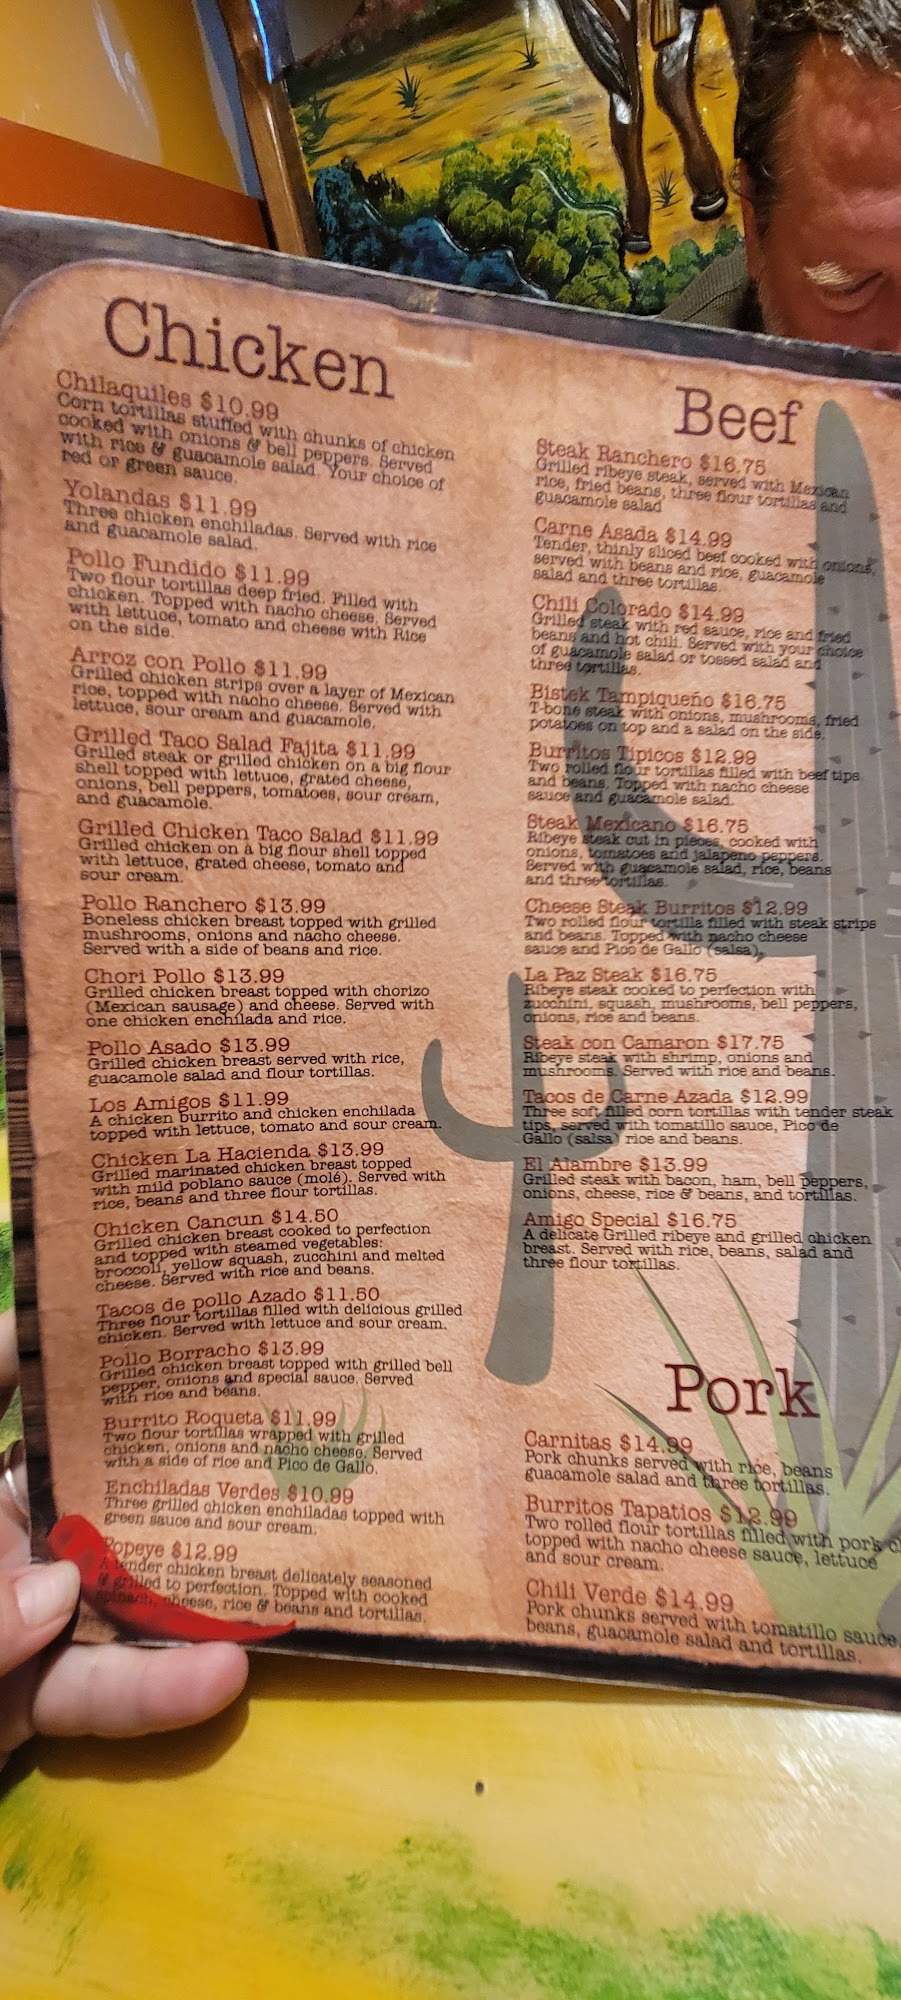 Chicken
Chilaquiles $10.99
Corn tortillas stuffed with chunks of chicken
cooked with onions & bell peppers. Served
with rice & guacamole salad. Your choice of
red or green sauce.
Yolandas $11.99
Three chicken enchiladas. Served with rice
and guacamole salad.
Pollo Fundido $11.99
Two flour tortillas deep fried. Filled with
chicken. Topped with nacho cheese. Served
with lettuce, tomato and cheese with Rice
on the side.
Arroz con Pollo $11.99
Grilled chicken strips over a layer of Mexican
rice, topped with nacho cheese. Served with
lettuce, sour cream and guacamole.
Grilled Taco Salad Fajita $11.99
Grilled steak or grilled chicken on a big flour
shell topped with lettuce, grated cheese,
onions, bell peppers, tomatoes, sour cream,
and guacamole.
Grilled Chicken Taco Salad $11.99
Grilled chicken on a big flour shell topped
with lettuce, grated cheese, tomato and
sour cream.
Pollo Ranchero $13.99
Boneless chicken breast topped with grilled
mushrooms, onions and nacho cheese.
Served with a side of beans and rice.
Chori Pollo $13.99
Grilled chicken breast topped with chorizo
(Mexican sausage) and cheese. Served with
one chicken enchilada and rice.
Pollo Asado $13.99
Grilled chicken breast served with rice,
guacamole salad and flour tortillas.
Los Amigos $11.99
A chicken burrito and chicken enchilada
topped with lettuce, tomato and sour cream.
Chicken La Hacienda $13.99
Grilled marinated chicken breast topped
with mild poblano sauce (molé). Served with
rice, beans and three flour tortillas.
Chicken Cancun $14.50
Grilled chicken breast cooked to perfection
and topped with steamed vegetables:
broccoli, yellow squash, zucchini and melted
cheese. Served with rice and beans.
Tacos de pollo Azado $11.50
Three flour tortillas filled with delicious grilled
chicken. Served with lettuce and sour cream.
Pollo Borracho $13.99
Grilled chicken breast topped with grilled bell
pepper, onions and special sauce. Served
with rice and beans.
Burrito Roqueta $11.99
Two flour tortillas wrapped with grilled
chicken, onions and nacho cheese. Served
with a side of rice and Pico de Gallo.
Enchiladas Verdes $10.99
Three grilled chicken enchiladas topped with
green sauce and sour cream.
Popeye $12.99
A tender chicken breast delicately seasoned
& grilled to perfection. Topped with cooked
spinach, cheese, rice & beans and tortillas.
Beef
Steak Ranchero $16.75
Grilled ribeye steak, served with Mexican
rice, fried beans, three flour tortillas and
guacamole salad
Carne Asada $14.99
Tender, thinly sliced beef cooked with onions,
served with beans and rice, guacamole
salad and three tortillas.
Chili Colorado $14.99
Grilled steak with red sauce, rice and fried
beans and hot chili. Served with your choice
of guacamole salad or tossed salad and
three tortillas.
Bistek Tampiqueño $16.75
T-bone steak with onions, mushrooms, fried
potatoes on top and a salad on the side.
Burritos Tipicos $12.99
Two rolled flour tortillas filled with beef tips
and beans. Topped with nacho cheese
sauce and guacamole salad.
Steak Mexicano $16.75
Ribeye steak cut in pieces, cooked with
onions, tomatoes and jalapeno peppers.
Served with guacamole salad, rice, beans
and three tortillas.
Cheese Steak Burritos $12.99
Two rolled flour tortilla filled with steak strips
and beans. Topped with nacho cheese
sauce and Pico de Gallo (salsa).
La Paz Steak $16.75
Ribeye steak cooked to perfection with
zucchini, squash, mushrooms, bell peppers,
onions, rice and beans.
Steak con Camaron $17.75
Ribeye steak with shrimp, onions and
mushrooms. Served with rice and beans.
Tacos de Carne Azada $12.99
Three soft filled corn tortillas with tender steak
tips, served with tomatillo sauce, Pico de
Gallo (salsa) rice and beans.
El Alambre $13.99
Grilled steak with bacon, ham, bell peppers,
onions, cheese, rice & beans, and tortillas.
Amigo Special $16.75
A delicate Grilled ribeye and grilled chicken
breast. Served with rice, beans, salad and
three flour tortillas.
Pork
Carnitas $14.99
Pork chunks served with rice, beans
guacamole salad and three tortillas.
Burritos Tapatios $12.99
Two rolled flour tortillas filled with pork
topped with nacho cheese sauce, lettuce
and sour cream.
Chili Verde $14.99
Pork chunks served with tomatillo sauce,
beans, guacamole salad and tortillas.